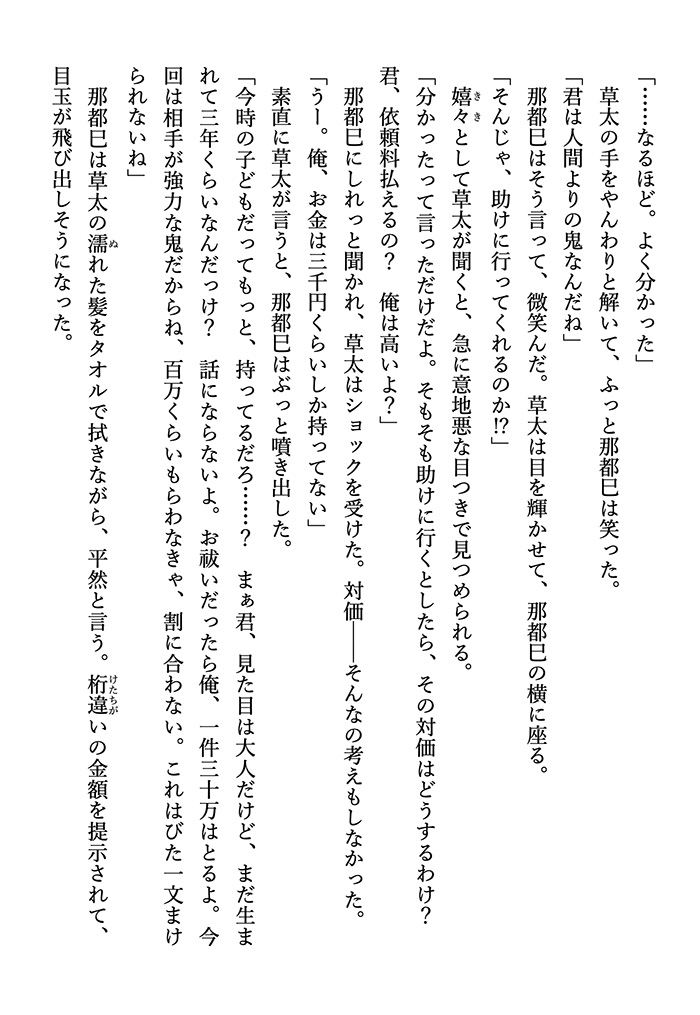 「……なるほど。よく分かった」
草太の手をやんわりと解いて、ふっと那都巳は笑った。
「君は人間よりの鬼なんだね」
那都巳はそう言って、微笑んだ。草太は目を輝かせて、那都巳の横に座る。
「そんじゃ、助けに行ってくれるのか⁉」
嬉々として草太が聞くと、急に意地悪な目つきで見つめられる。
「分かったって言っただけだよ。そもそも助けに行くとしたら、その対価はどうするわけ？
君、依頼料払えるの？　俺は高いよ？」
那都巳にしれっと聞かれ、草太はショックを受けた。対価――そんなの考えもしなかった。
「うー。俺、お金は三千円くらいしか持ってない」
素直に草太が言うと、那都巳はぶっと噴き出した。
「今時の子どもだってもっと、持ってるだろ……？　まぁ君、見た目は大人だけど、まだ生ま
れて三年くらいなんだっけ？　話にならないよ。お祓いだったら俺、一件三十万はとるよ。今
回は相手が強力な鬼だからね、百万くらいもらわなきゃ、割に合わない。これはびた一文まけ
られないね」
那都巳は草太の濡れた髪をタオルで拭きながら、平然と言う。桁違いの金額を提示されて、
目玉が飛び出しそうになった。